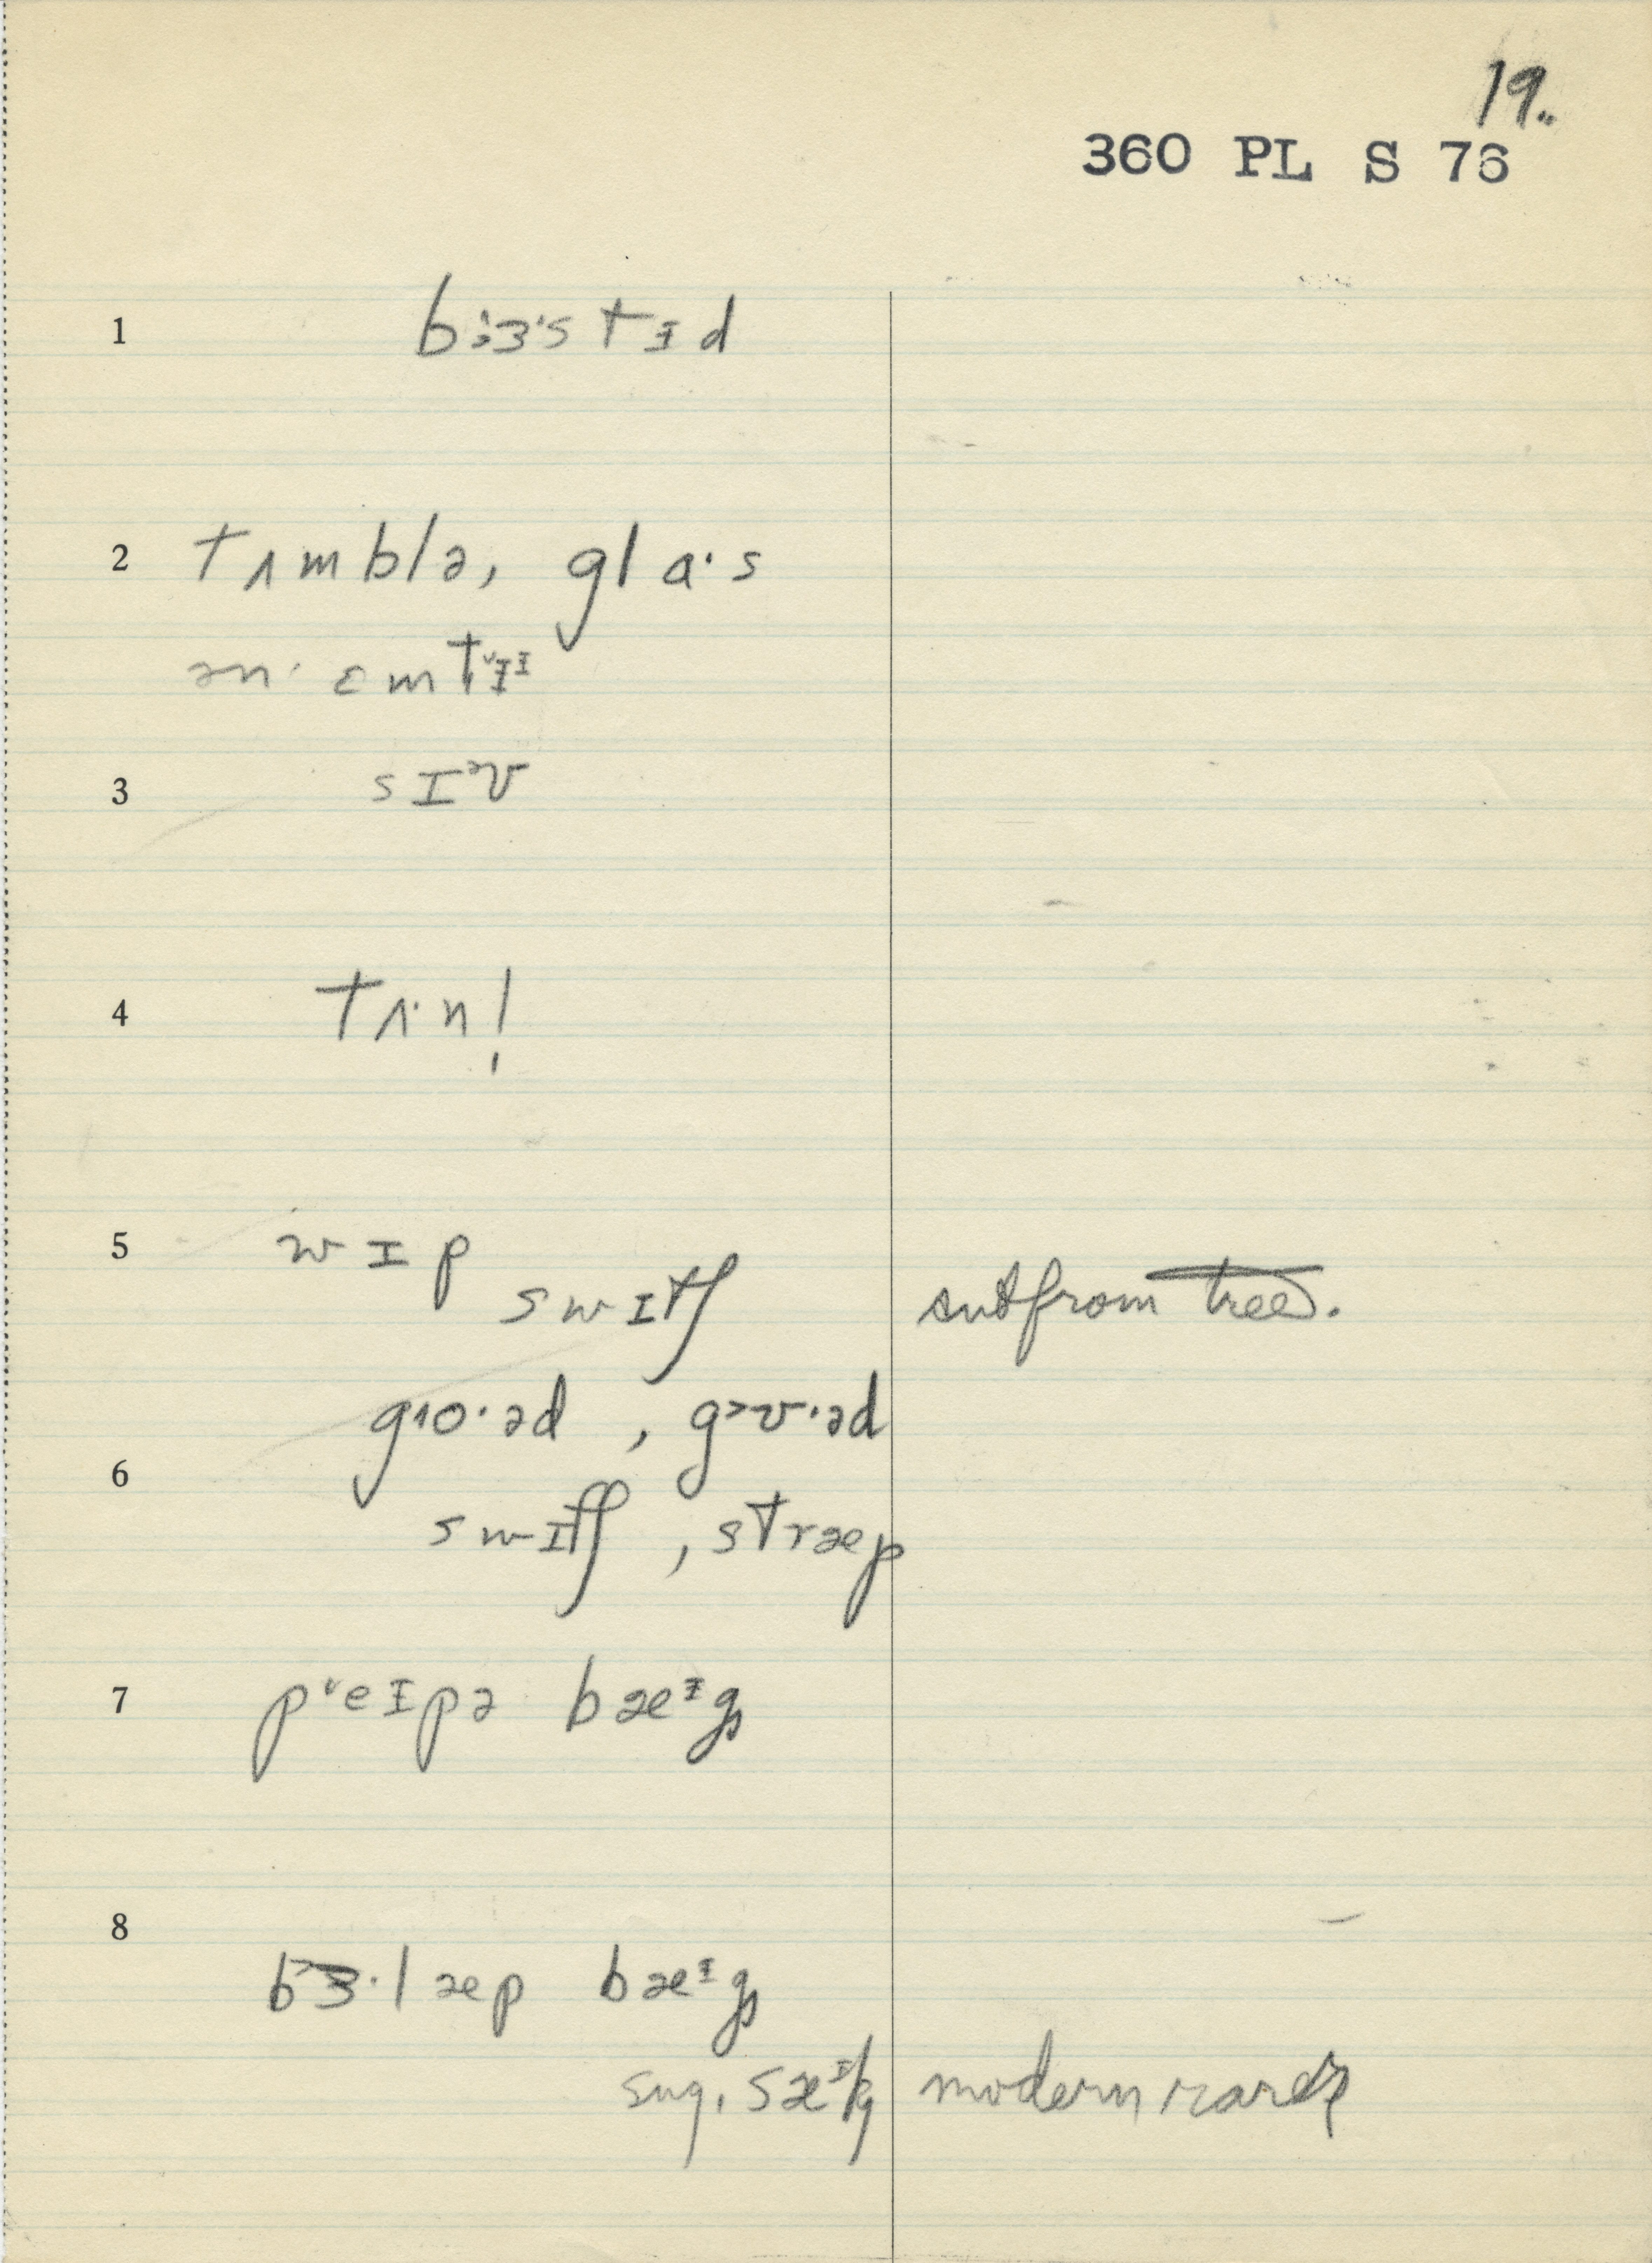 19.
360 PL S 76
1 bɜːɜ·stɪd
2 tʌmblə, gla·s
ən· ɛmtˇɪᶦ
3 sɪᵊv
4 tʌ·nl̩
5 wɪp
swɪtʃ cut from tree.
gɔo·əd , gɔʊ·əd
6
swɪtʃ , stræp
7 pˇeɪpə bæᶦg̥
8
bɜ·læp bæᶦg̥
sug. sæᶦk modern rarely